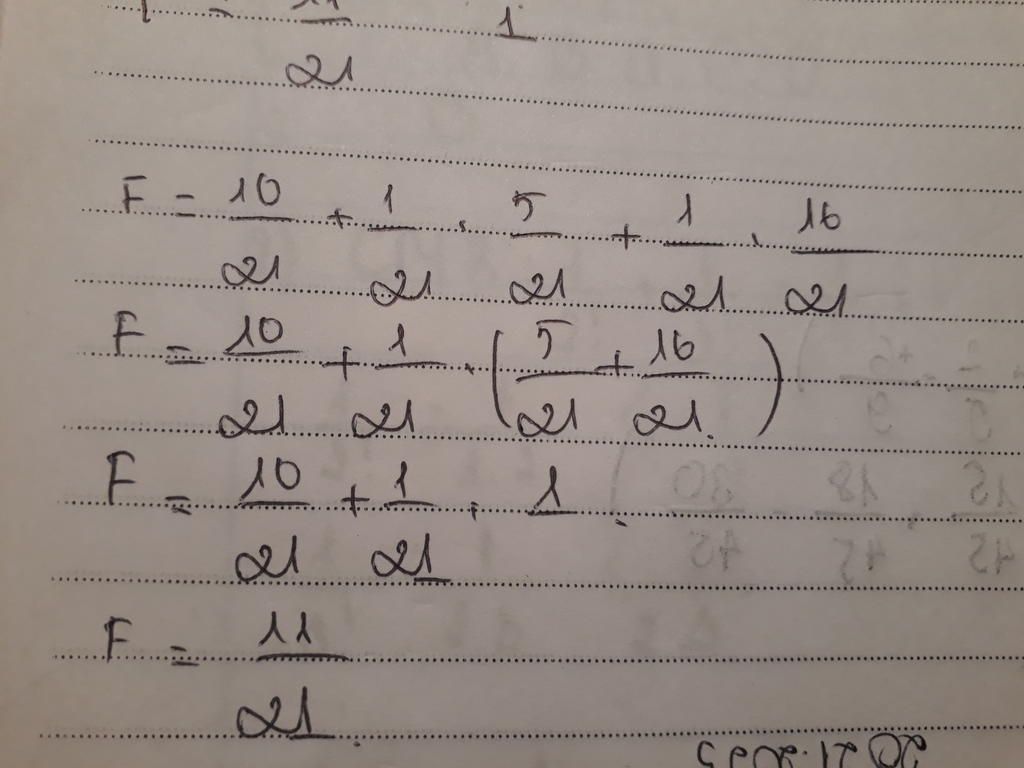 = 11/21 1
F = 10/21 + 1/21 . 5/21 + 1/21 . 16/21
F = 10/21 + 1/21 . (5/21 + 16/21)
F = 10/21 + 1/21 . 1
F = 11/21